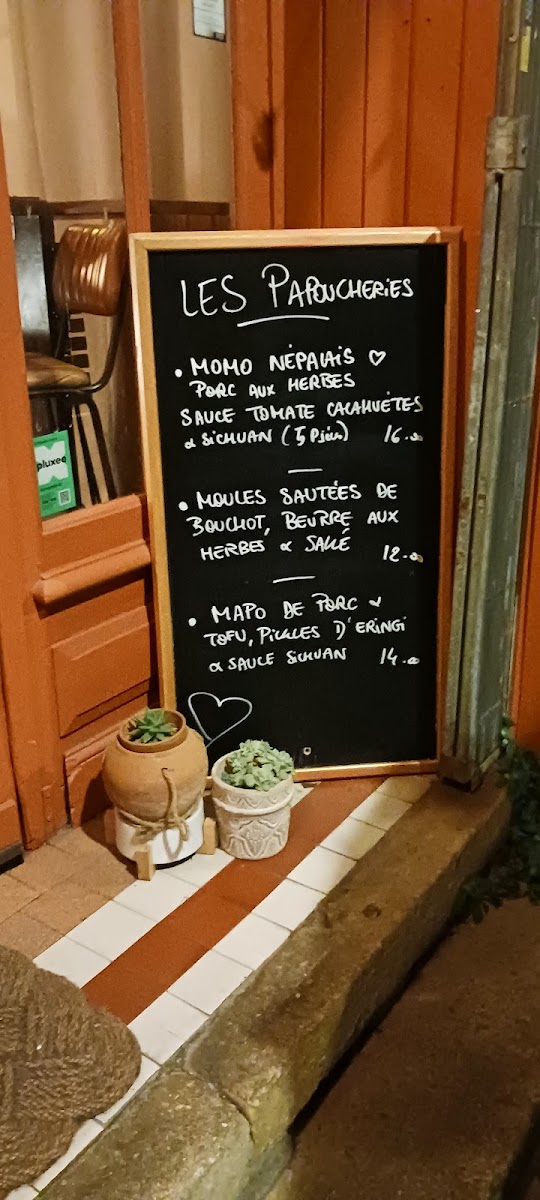 LES PAPOUCHERIES
• MOMO NÉPALAIS ♡
PORC AUX HERBES
SAUCE TOMATE CACAHUÈTES
& SICHUAN (5 Pièces) 16.00
• MOULES SAUTÉES DE
BOUCHOT, BEURRE AUX
HERBES & SALÉ 12.00
• MAPO DE PORC &
TOFU, PICKLES D'ERINGI
& SAUCE SICHUAN 14.00
pluxee